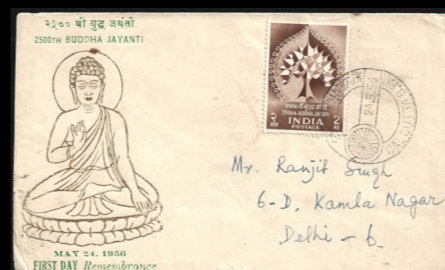 २५०० वीं बुद्ध जयंती
2500TH BUDDHA JAYANTI
2500TH BUDDHA JAYANTI
INDIA
POSTAGE
2 AS
Mr. Ranjit Singh
6-D, Kamla Nagar
Delhi - 6.
MAY 24, 1956
FIRST DAY Remembrance